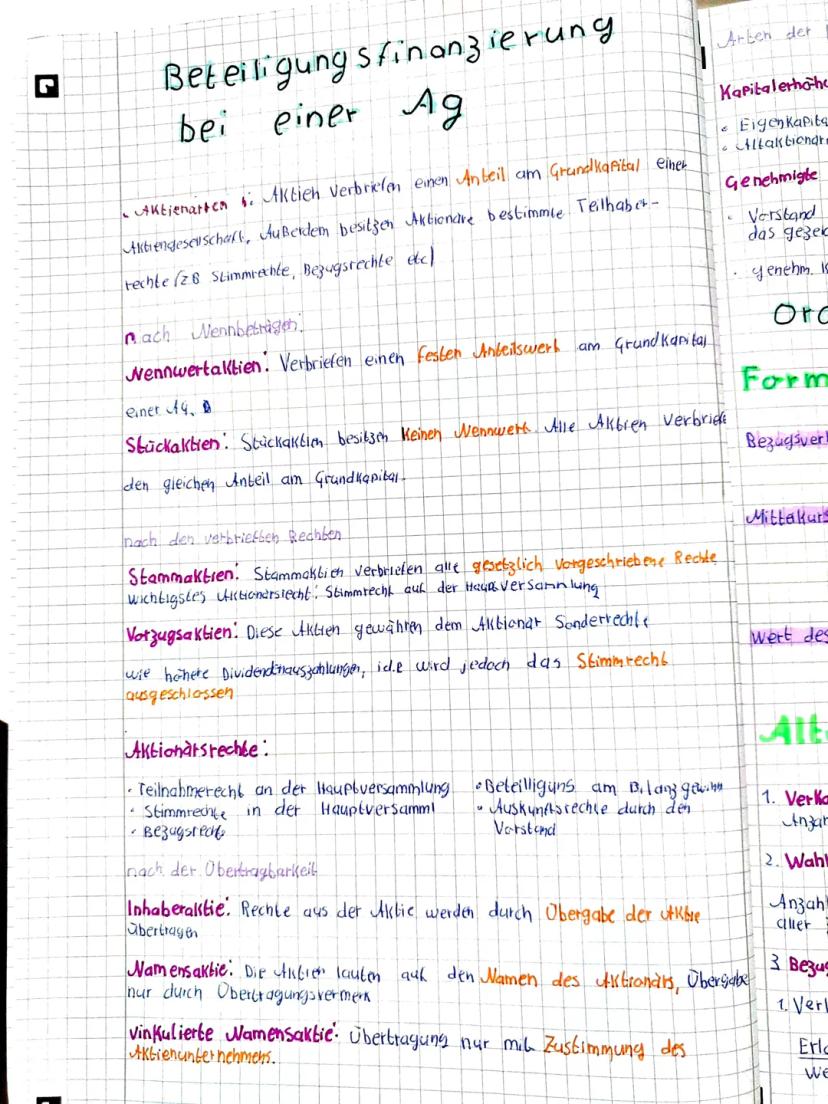 Beteiligungsfinanzierung
bei einer Ag
Aktienarten : Aktien verbriefen einen Anteil am Grundkapital einer
Aktiengesellschaft. Außerdem besitzen Aktionäre bestimmte Teilhaber-
rechte (z B Stimmrechte, Bezugsrechte etc)
nach Nennbeträgen:
Nennwertaktien: Verbriefen einen festen Anteilswert am Grundkapital
einer AG.
Stückaktien: Stückaktien besitzen keinen Nennwert. Alle Aktien verbriefe
den gleichen Anteil am Grundkapital.
nach den verbrieften Rechten
Stammaktien: Stammaktien verbriefen alle gesetzlich vorgeschriebene Rechte
wichtigstes Aktionärsrecht: Stimmrecht auf der Hauptversammlung
Vorzugsaktien: Diese Aktien gewähren dem Aktionär Sonderrechte
wie höhere Dividendenauszahlungen, i.d.R wird jedoch das Stimmrecht
ausgeschlossen
Aktionärsrechte:
· Teilnahmerecht an der Hauptversammlung
· Stimmrechte in der Hauptversamml
· Bezugsrecht
· Beteiligung am Bilanzgewinn
· Auskunftsrechte durch den
Vorstand
nach der Übertragbarkeit
Inhaberaktie: Rechte aus der Aktie werden durch Übergabe der Aktie
übertragen
Namensaktie: Die Aktien lauten auf den Namen des Aktionärs, Übergabe
nur durch Übertragungsvermerk
vinkulierte Namensaktie: Übertragung nur mit Zustimmung des
Aktienunternehmens.
Arten der
Kapitalerhöh
· Eigenkapita
· Altaktionär
Genehmigte
· Vorstand
das gezei
· genehm. K
Form
Bezugsverh
Mittelkurs
Wert des
Alt
1. Verka
Anzah
2. Wahl
Anzahl
aller
3 Bezug
1. Verl
Erlö
We